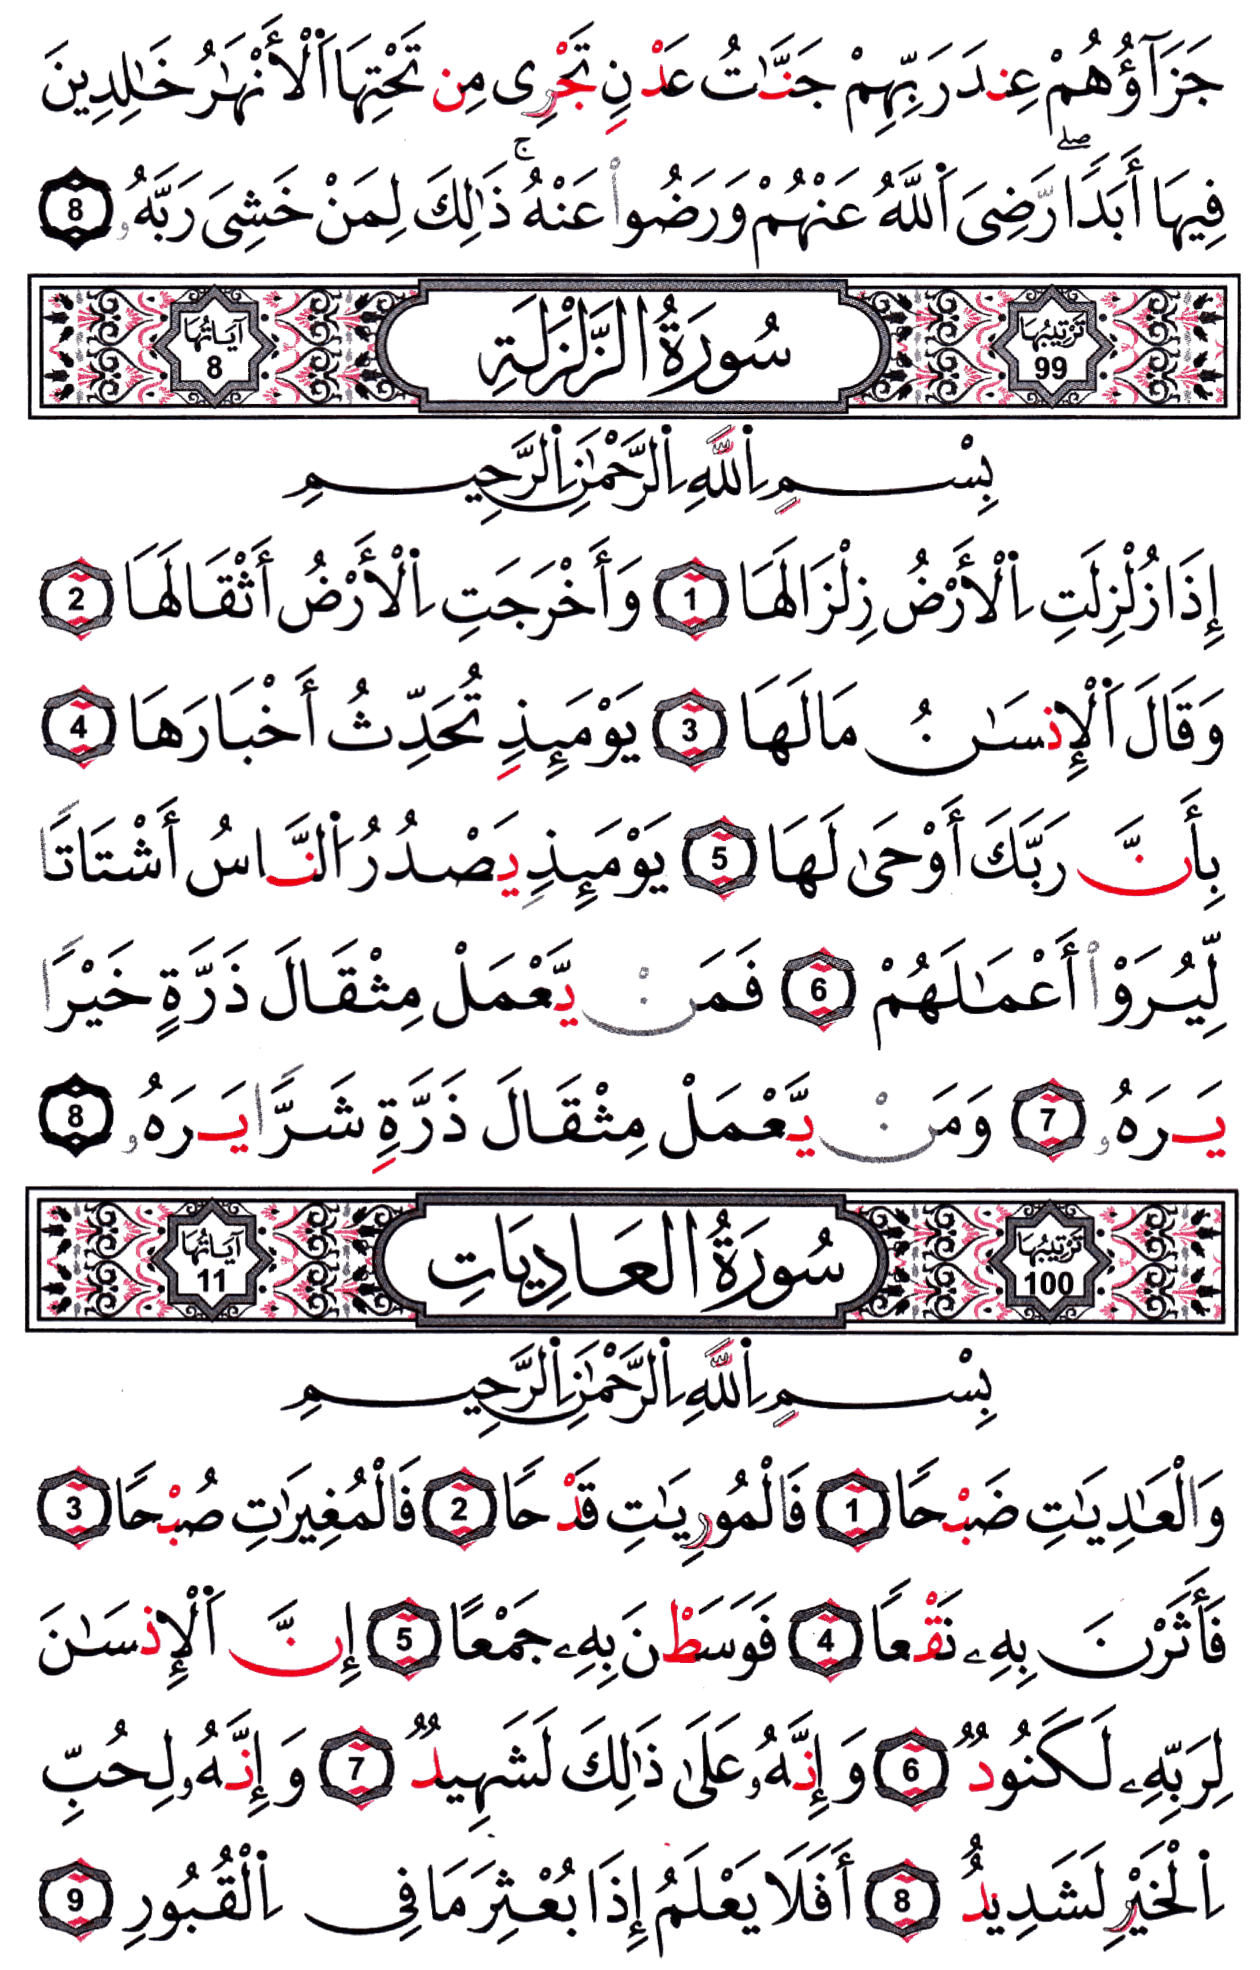 جَزَآؤُهُمْ عِندَ رَبِّهِمْ جَنَّـٰتُ عَدْنٍ تَجْرِى مِن تَحْتِهَا ٱلْأَنْهَـٰرُ خَـٰلِدِينَ
فِيهَا أَبَدًا ۖ رَّضِىَ ٱللَّهُ عَنْهُمْ وَرَضُوا۟ عَنْهُ ۚ ذَٰلِكَ لِمَنْ خَشِىَ رَبَّهُۥ 8
تَرْتِيبُهَا 99 سُورَةُ الزَّلْزَلَةِ آيَاتُهَا 8
بِسْمِ ٱللَّهِ ٱلرَّحْمَـٰنِ ٱلرَّحِيمِ
إِذَا زُلْزِلَتِ ٱلْأَرْضُ زِلْزَالَهَا 1 وَأَخْرَجَتِ ٱلْأَرْضُ أَثْقَالَهَا 2
وَقَالَ ٱلْإِنسَـٰنُ مَا لَهَا 3 يَوْمَئِذٍ تُحَدِّثُ أَخْبَارَهَا 4
بِأَنَّ رَبَّكَ أَوْحَىٰ لَهَا 5 يَوْمَئِذٍ يَصْدُرُ ٱلنَّاسُ أَشْتَاتًا
لِّيُرَوْا۟ أَعْمَـٰلَهُمْ 6 فَمَنْ يَّعْمَلْ مِثْقَالَ ذَرَّةٍ خَيْرًا
يَرَهُۥ 7 وَمَنْ يَّعْمَلْ مِثْقَالَ ذَرَّةٍ شَرًّا يَرَهُۥ 8
تَرْتِيبُهَا 100 سُورَةُ العَادِيَاتِ آيَاتُهَا 11
بِسْمِ ٱللَّهِ ٱلرَّحْمَـٰنِ ٱلرَّحِيمِ
وَالْعَـٰدِيَـٰتِ ضَبْحًا 1 فَالْمُورِيَـٰتِ قَدْحًا 2 فَالْمُغِيرَٰتِ صُبْحًا 3
فَأَثَرْنَ بِهِۦ نَقْعًا 4 فَوَسَطْنَ بِهِۦ جَمْعًا 5 إِنَّ ٱلْإِنسَـٰنَ
لِرَبِّهِۦ لَكَنُودٌ 6 وَإِنَّهُۥ عَلَىٰ ذَٰلِكَ لَشَهِيدٌ 7 وَإِنَّهُۥ لِحُبِّ
ٱلْخَيْرِ لَشَدِيدٌ 8 أَفَلَا يَعْلَمُ إِذَا بُعْثِرَ مَا فِى ٱلْقُبُورِ 9